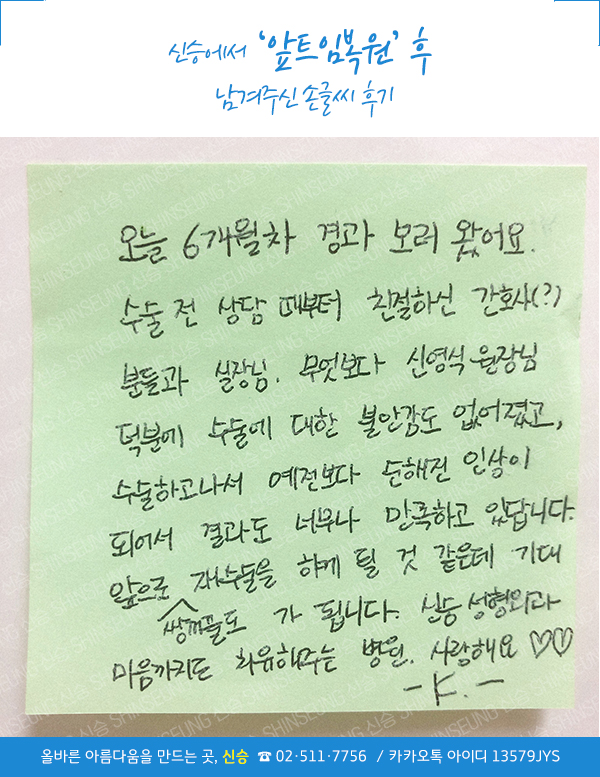 신승에서 '앞트임복원' 후
남겨주신 손글씨 후기
오늘 6개월차 경과 보러 왔어요.
수술 전 상담 때부터 친절하신 간호사(?)
분들과 실장님. 무엇보다 신영식 원장님
덕분에 수술에 대한 불안감도 없어졌고,
수술하고나서 예전보다 순해진 인상이
되어서 결과도 너무나 만족하고 있답니다.
앞으로 재수술을 하게 될 것 같은데 기대
쌍꺼풀도 가 됩니다. 신승 성형외과
마음까지도 치유해주는 병원. 사랑해요 ♡♡
-K.-
올바른 아름다움을 만드는 곳, 신승 ☎ 02·511·7756 / 카카오톡 아이디 13579JYS